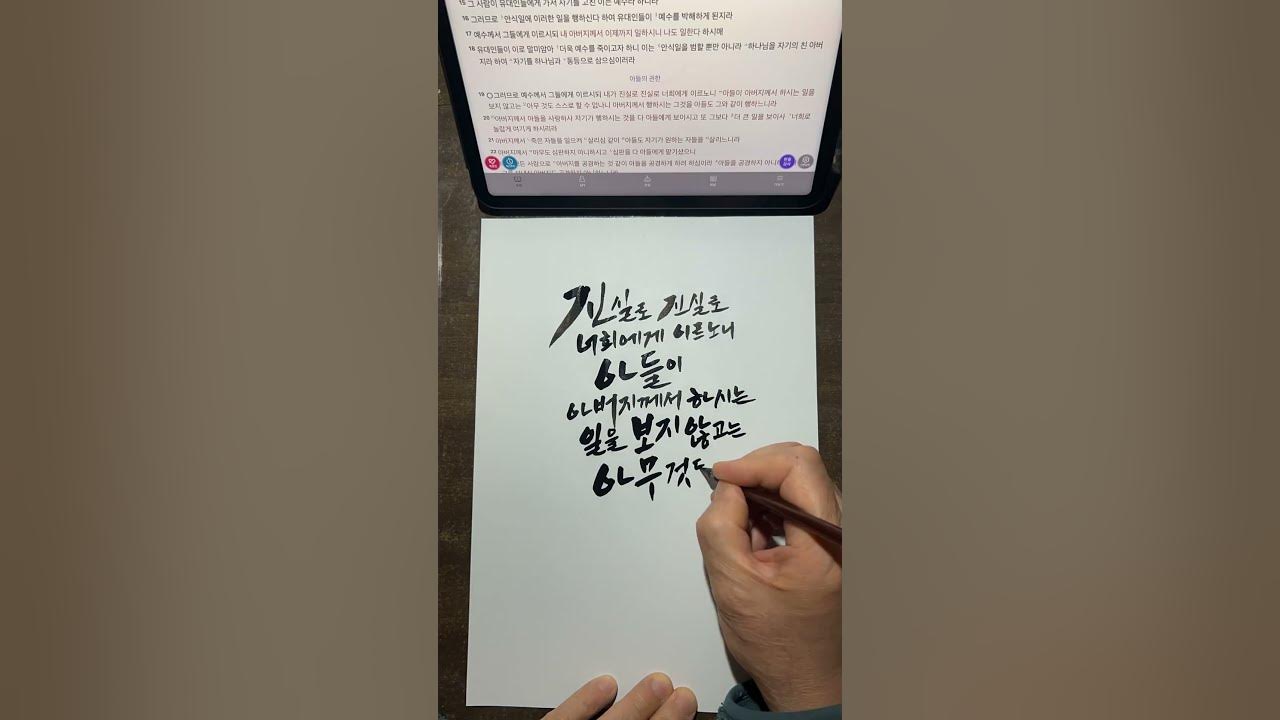 15 그 사람이 유대인들에게 가서 자기를 고친 이는 예수라 하니라
16 그러므로 안식일에 이러한 일을 행하신다 하여 유대인들이 예수를 박해하게 된지라
17 예수께서 그들에게 이르시되 내 아버지께서 이제까지 일하시니 나도 일한다 하시매
18 유대인들이 이로 말미암아 더욱 예수를 죽이고자 하니 이는 안식일을 범할 뿐만 아니라 하나님을 자기의 친 아버
지라 하여 자기를 하나님과 동등으로 삼으심이러라
아들의 권한
19 ○그러므로 예수께서 그들에게 이르시되 내가 진실로 진실로 너희에게 이르노니 아들이 아버지께서 하시는 일을
보지 않고는 아무 것도 스스로 할 수 없나니 아버지께서 행하시는 그것을 아들도 그와 같이 행하느니라
20 아버지께서 아들을 사랑하사 자기가 행하시는 것을 다 아들에게 보이시고 또 그보다 더 큰 일을 보이사 너희로
놀랍게 여기게 하시리라
21 아버지께서 죽은 자들을 일으켜 살리심 같이 아들도 자기가 원하는 자들을 살리느니라
22 아버지께서 아무도 심판하지 아니하시고 심판을 다 아들에게 맡기셨으니
모든 사람으로 아버지를 공경하는 것 같이 아들을 공경하게 하려 하심이라 아들을 공경하지
진실로 진실로
너희에게 이르노니
아들이
아버지께서 하시는
일을 보지 않고는
아무것